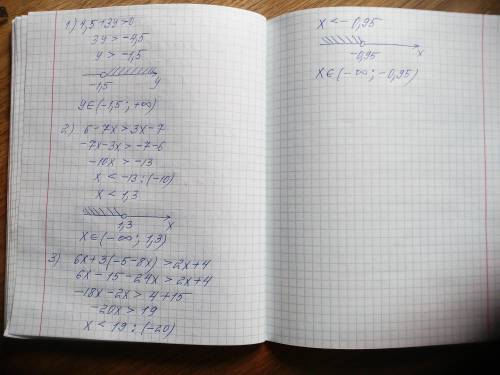 1) 4,5+3y>0
3y > -4,5
y > -1,5
-1,5 y
y∈(-1,5 ; +∞)
2) 6-7x > 3x-7
-7x-3x > -7-6
-10x > -13
x < -13 : (-10)
x < 1,3
1,3 x
x∈(-∞ ; 1,3)
3) 6x+3(-5-8x) > 2x+4
6x-15-24x > 2x+4
-18x-2x > 4+15
-20x > 19
x < 19 : (-20)
x < -0,95
-0,95 x
x∈(-∞ ; -0,95)